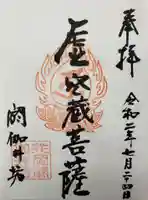 奉拝
令和二年七月二十四日
虚空蔵菩薩
閼伽井坊